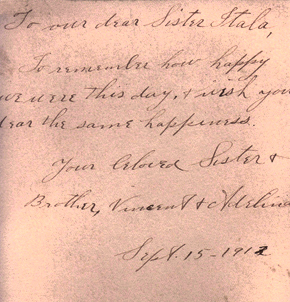 To our dear Sister Stala,
To remember how happy
we were this day, & wish you
dear the same happiness.
Your beloved Sister &
Brother, Vincent & Adelina
Sept. 15 - 1912